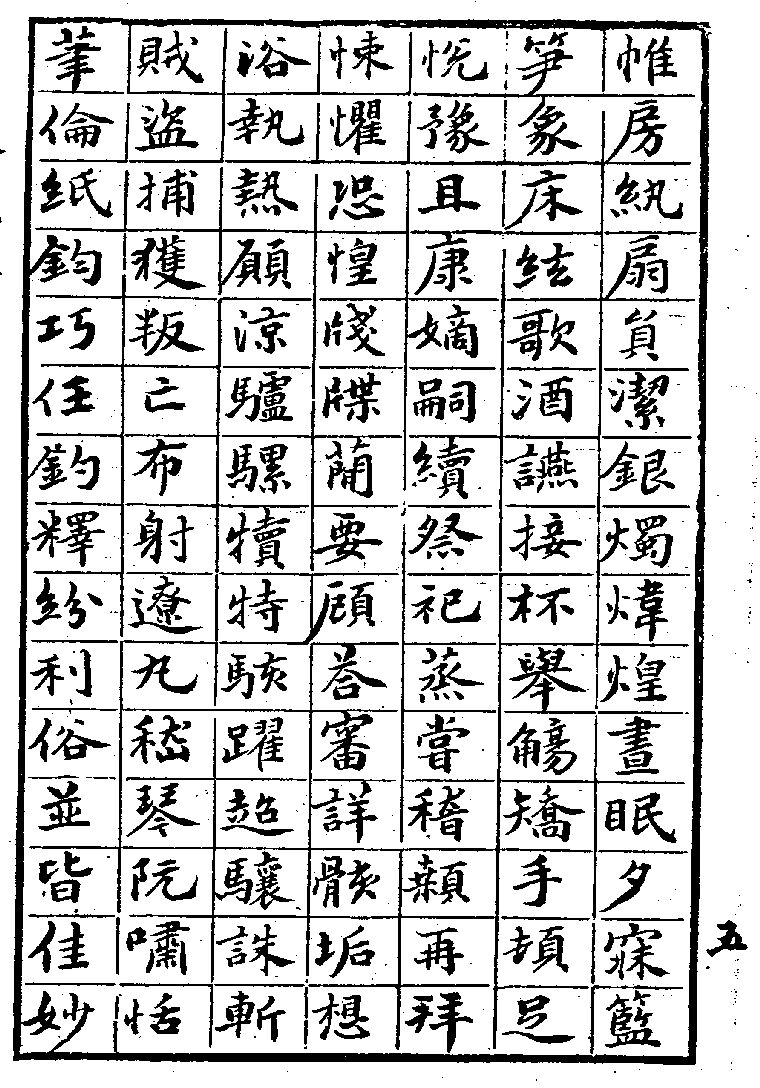 帷房紈扇貟潔銀燭煒煌晝眠夕寐籃
笋象床絃歌酒讌接杯舉觴矯手頓足
悅豫且康嫡嗣續祭祀蒸嘗稽顙再拜
悚懼恐惶牋牒簡要顧答審詳骸垢想
浴執熱願涼驢騾犢特駭躍超驤誅斬
賊盜捕獲叛亡布射遼丸嵇琴阮嘯恬
筆倫紙鈞巧任釣釋紛利俗並皆佳妙
五